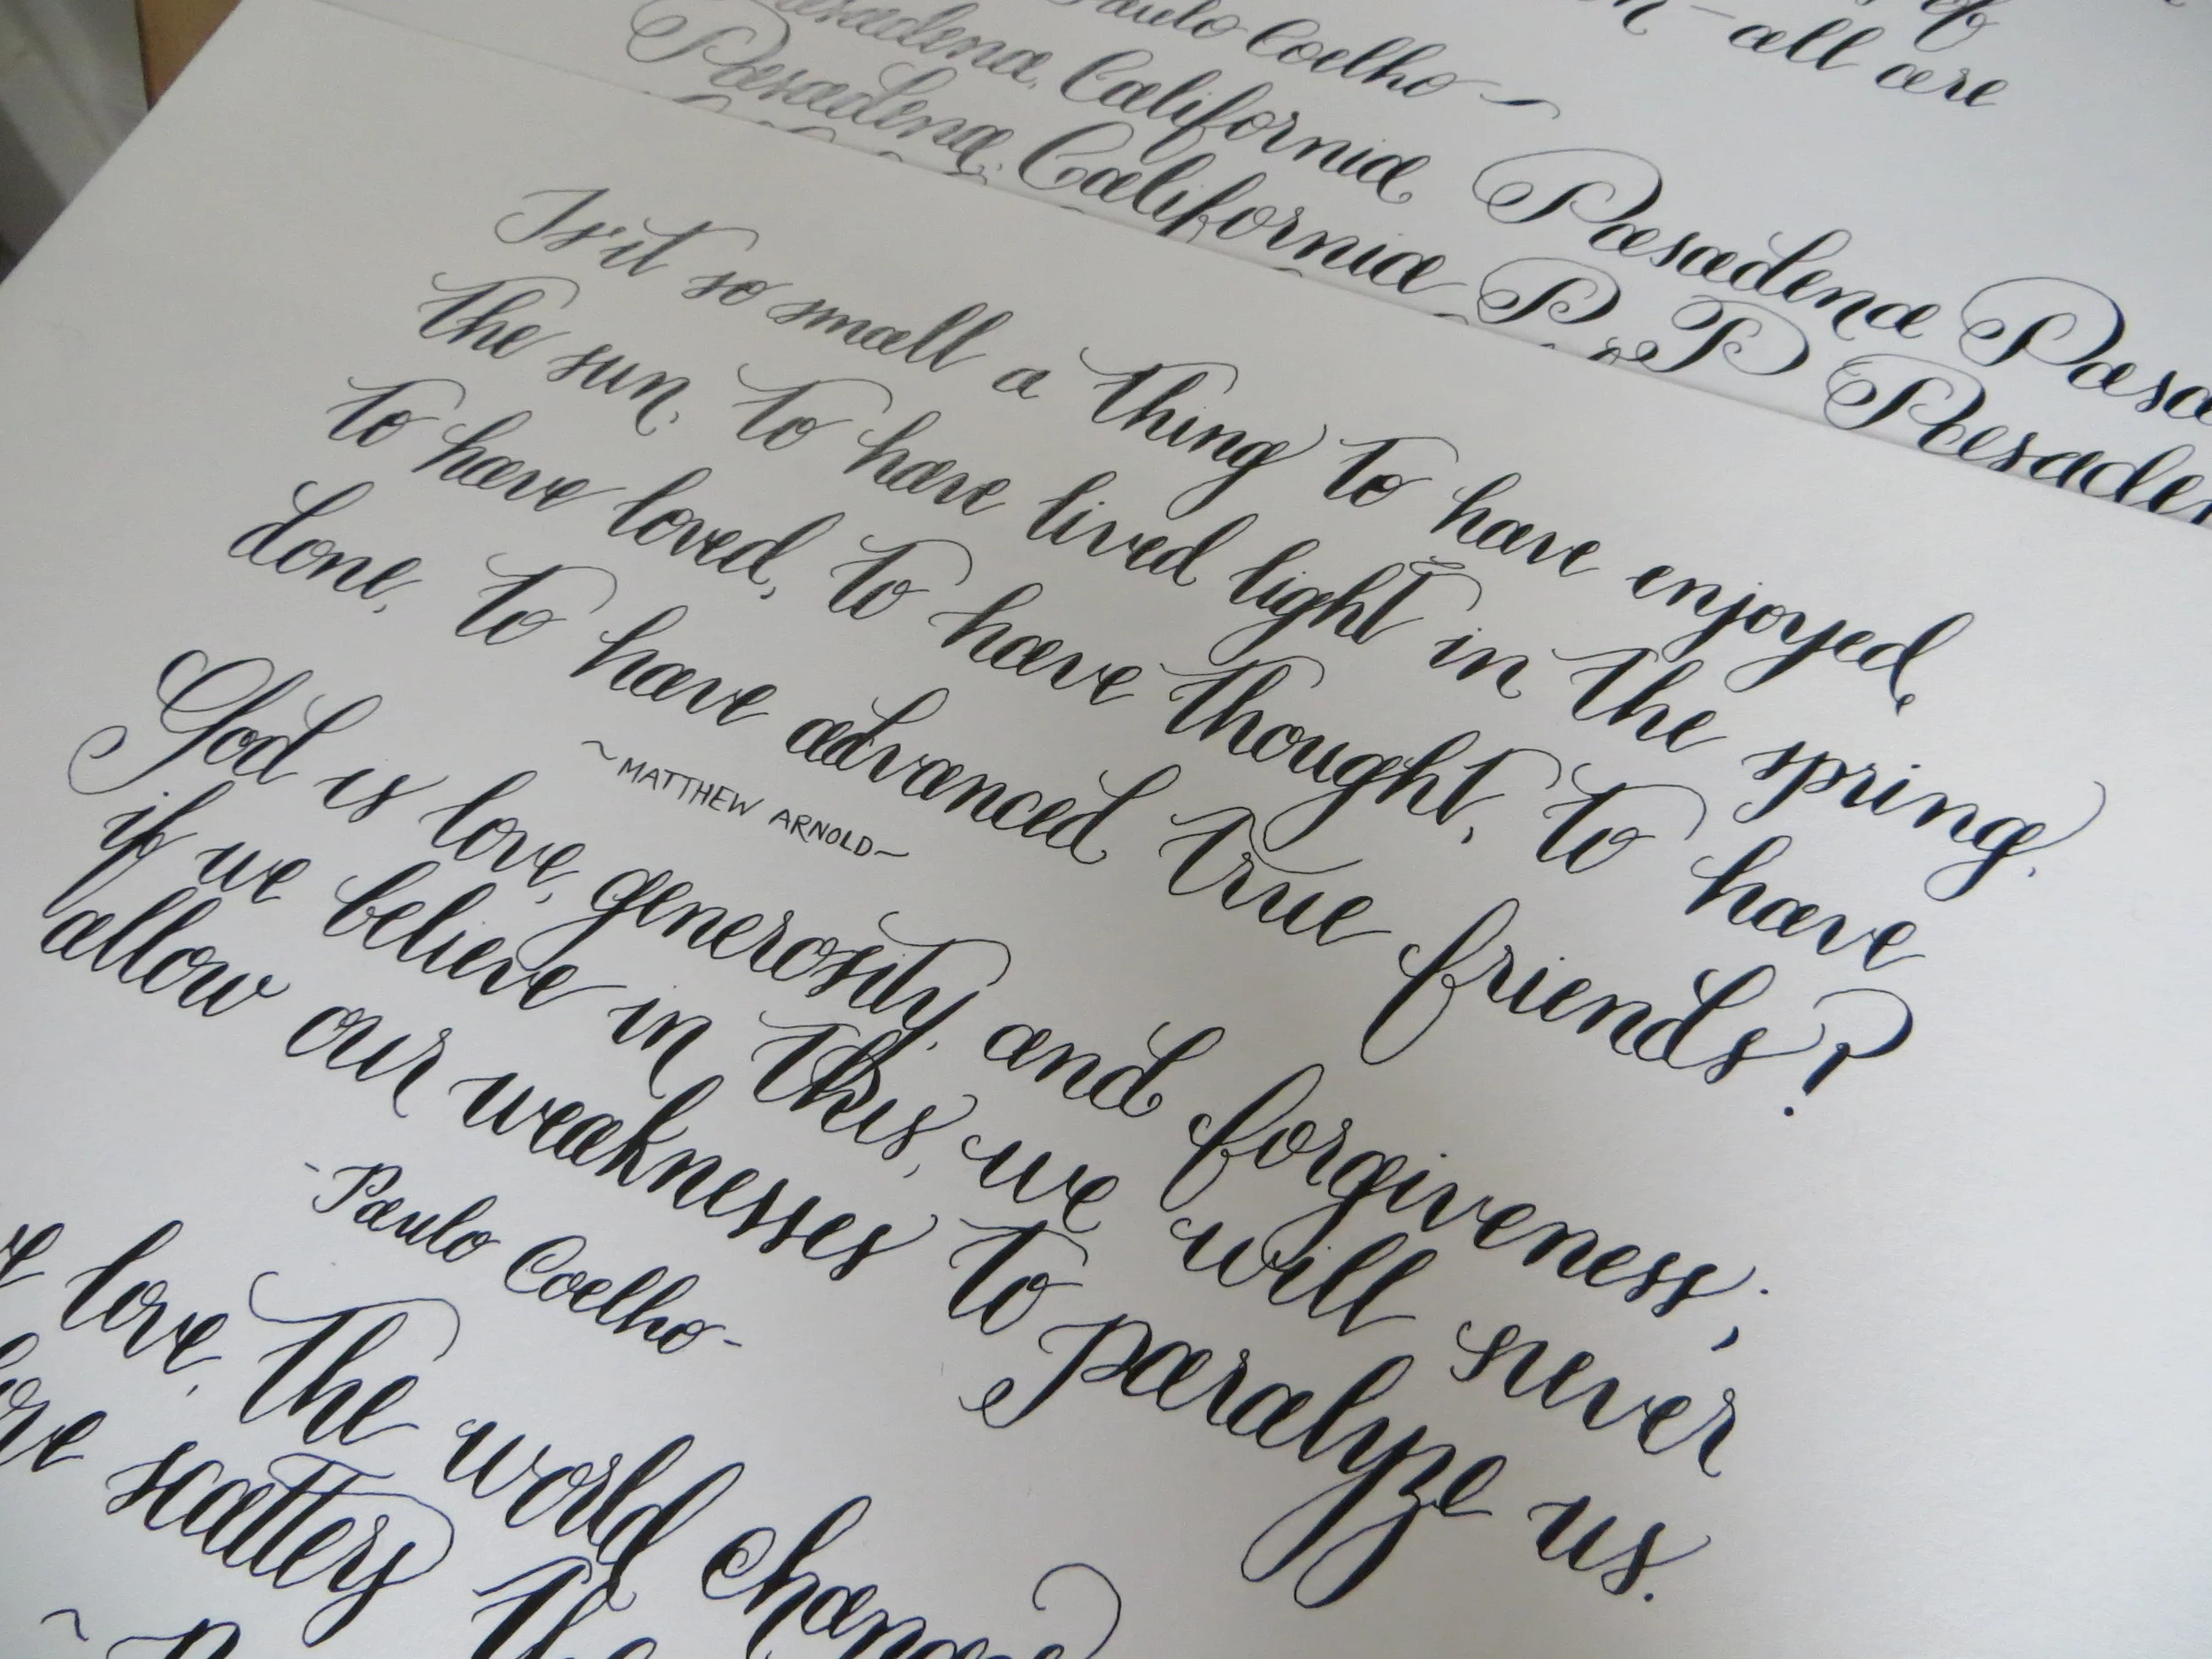 Paulo Coelho ~
all are
Pasadena, California Pasadena
Pasadena, California P P
Is it so small a thing to have enjoyed
the sun, to have lived light in the spring,
to have loved, to have thought, to have
done, to have advanced true friends?
~MATTHEW ARNOLD~
God is love, generosity, and forgiveness;
if we believe in this, we will never
allow our weaknesses to paralyze us.
-Paulo Coelho-
love, the world
scatters the